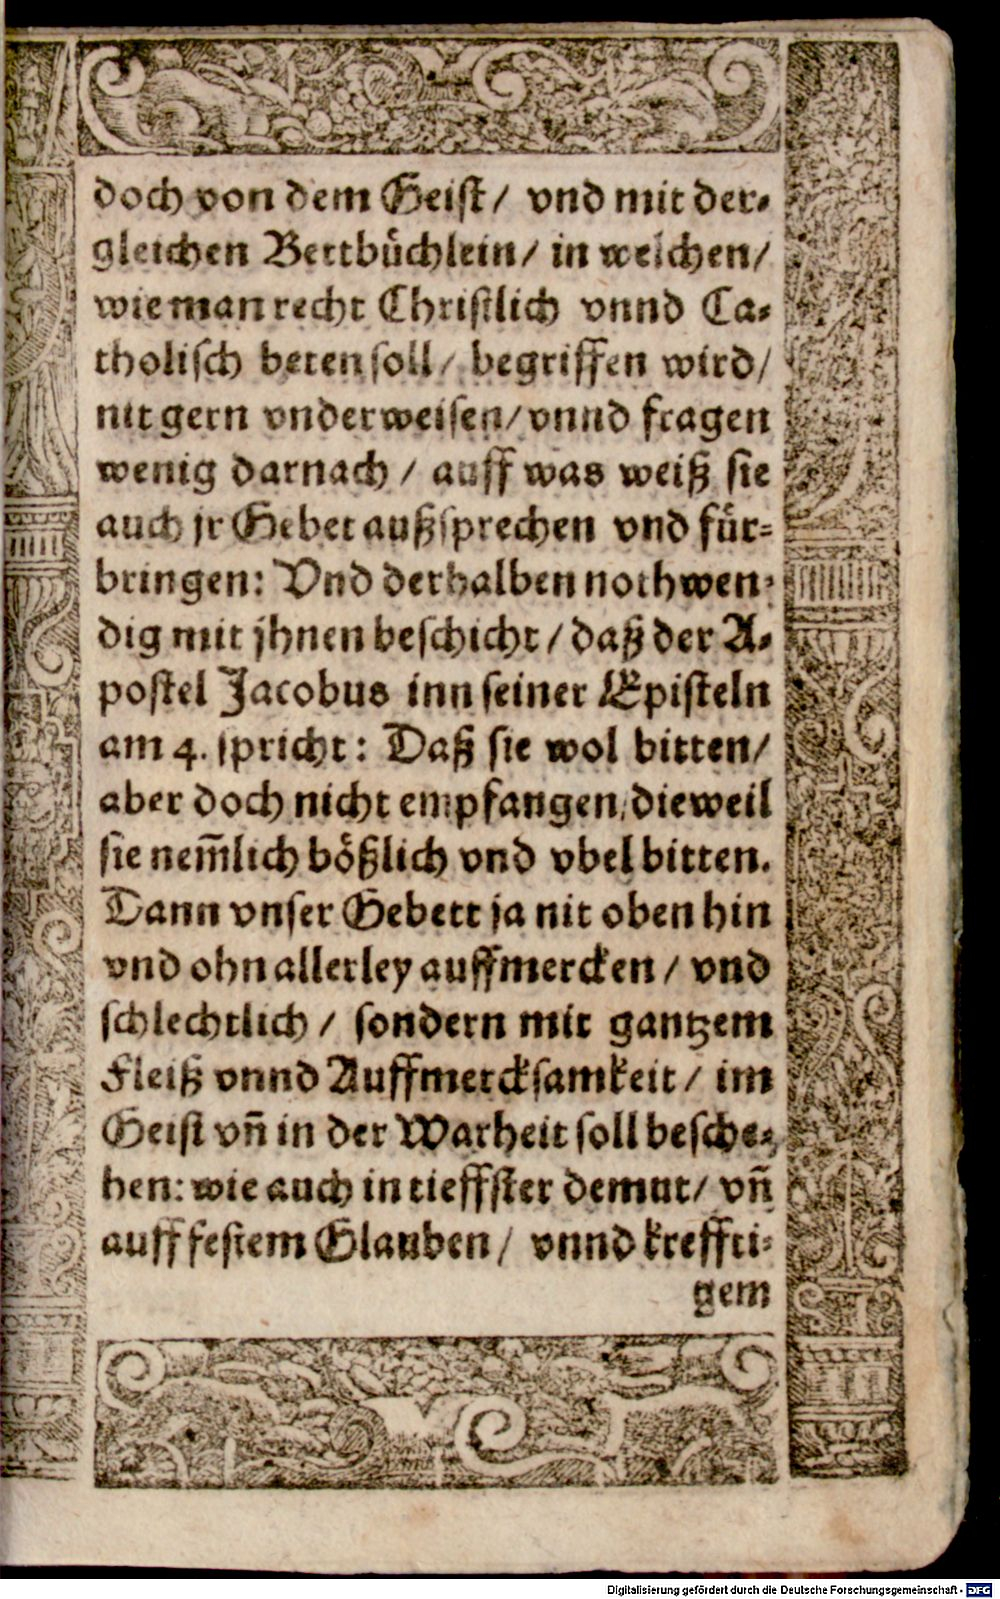 doch von dem Geist/ vnd mit der-
gleichen Bettbůchlein/ in welchen/
wie man recht Christlich vnnd Ca-
tholisch beten soll/ begriffen wird/
nit gern vnderweisen/ vnnd fragen
wenig darnach/ auff was weiß sie
auch jr Gebet außsprechen vnd fůr-
bringen: Vnd derhalben nothwen-
dig mit jhnen beschicht/ daß der A-
postel Jacobus inn seiner Episteln
am 4. spricht: Daß sie wol bitten/
aber doch nicht empfangen, dieweil
sie nem̃lich bößlich vnd vbel bitten.
Dann vnser Gebett ja nit oben hin
vnd ohn allerley auffmercken/ vnd
schlechtlich/ sondern mit gantzem
Fleiß vnnd Auffmercksamkeit/ im
Geist vñ in der Warheit soll besche-
hen: wie auch in tieffster demut/ vñ
auff festem Glauben/ vnnd kreffti-
gem
Digitalisierung gefördert durch die Deutsche Forschungsgemeinschaft - DFG